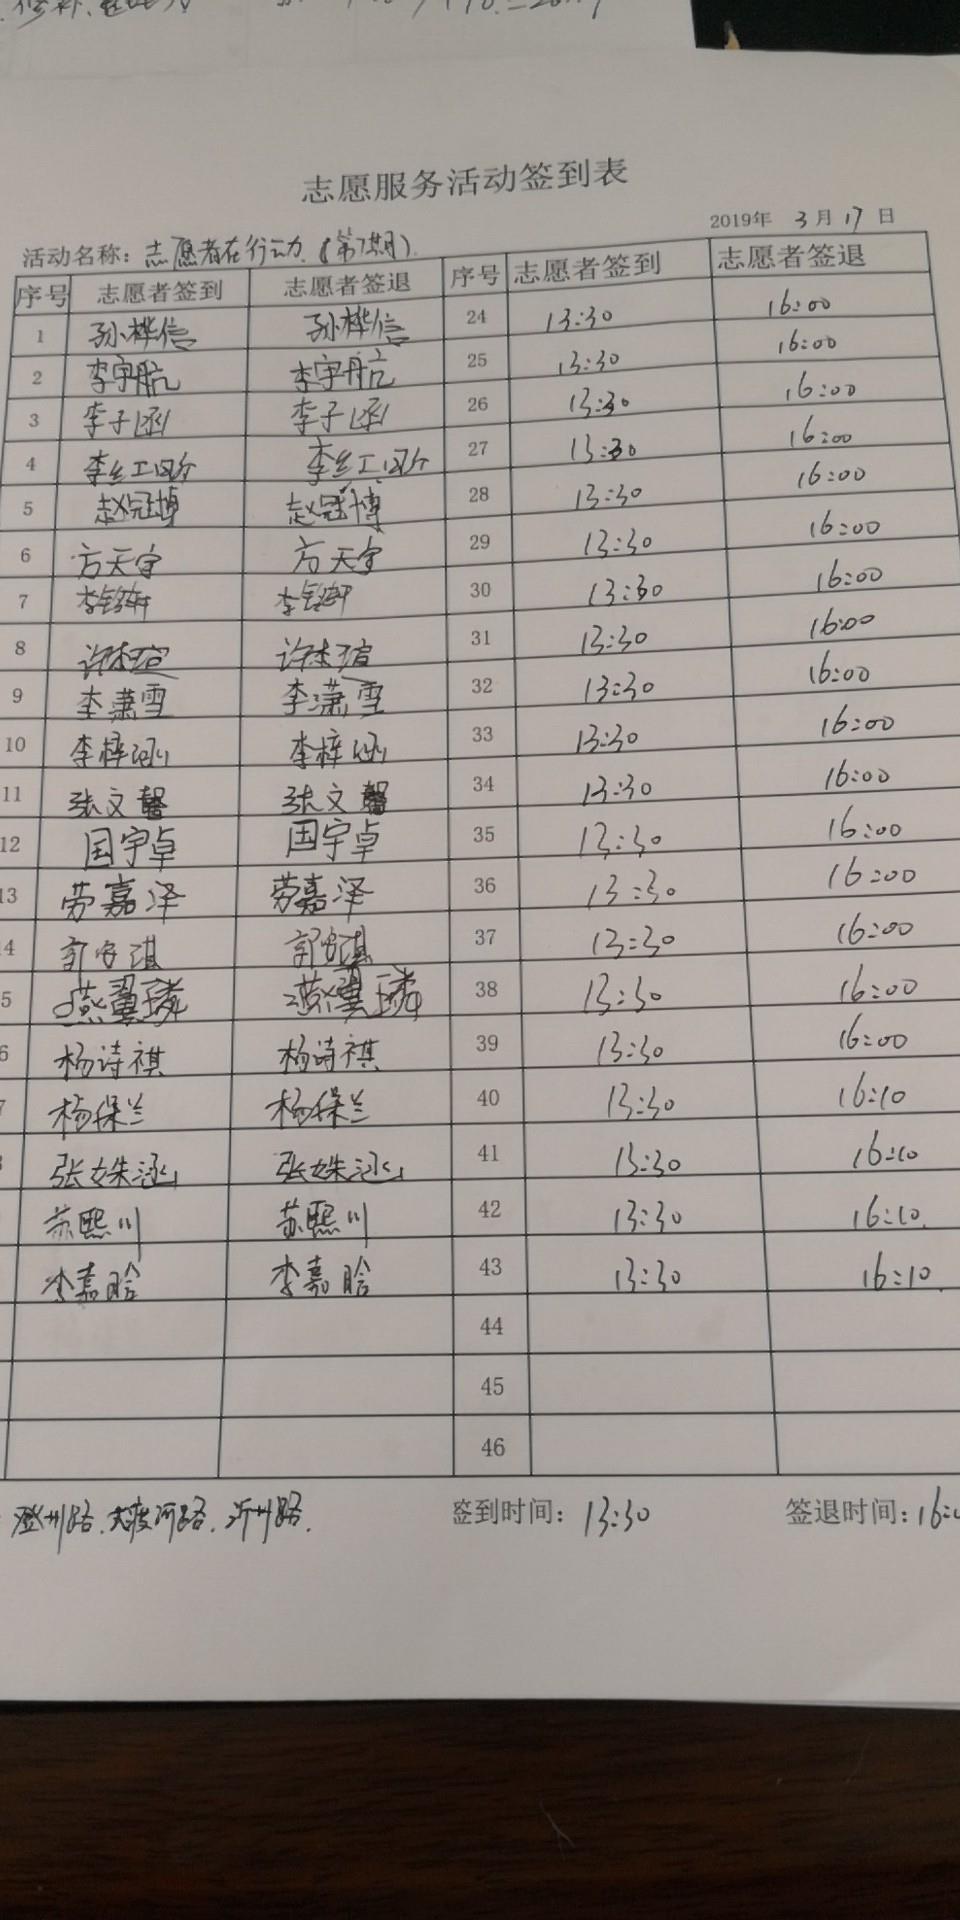 志愿服务活动签到表
2019年 3月17日
活动名称：志愿者在行动（第7期）
序号 志愿者签到 志愿者签退 序号 志愿者签到 志愿者签退
1 孙桦信 孙桦信 24 13:30 16:00
2 李宇航 李宇航 25 13:30 16:00
3 李子函 李子函 26 13:30 16:00
4 27 13:30 16:00
5 赵冠博 赵冠博 28 13:30 16:00
6 方天宇 方天宇 29 13:30 16:00
7 李铭轩 李铭轩 30 13:30 16:00
8 许杰瑄 许杰瑄 31 13:30 16:00
9 李潇雪 李潇雪 32 13:30 16:00
10 李梓涵 李梓涵 33 13:30 16:00
11 张文馨 张文馨 34 13:30 16:00
12 国宇卓 国宇卓 35 13:30 16:00
13 劳嘉泽 劳嘉泽 36 13:30 16:00
4 郭安琪 郭安琪 37 13:30 16:00
5 燕翼璘 燕翼璘 38 13:30 16:00
6 杨诗祺 杨诗祺 39 13:30 16:00
7 杨保兰 杨保兰 40 13:30 16:10
张姝涵 张姝涵 41 13:30 16:10
苏熙川 苏熙川 42 13:30 16:10.
李嘉晗 李嘉晗 43 13:30 16:10
44
45
46
登州路、大渡河路、沂州路. 签到时间：13:30 签退时间：16: